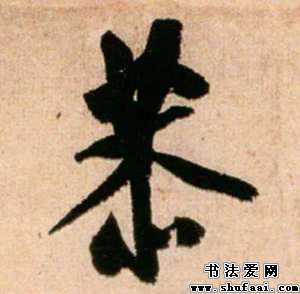 恭
书法爱网
www.shufaai.com